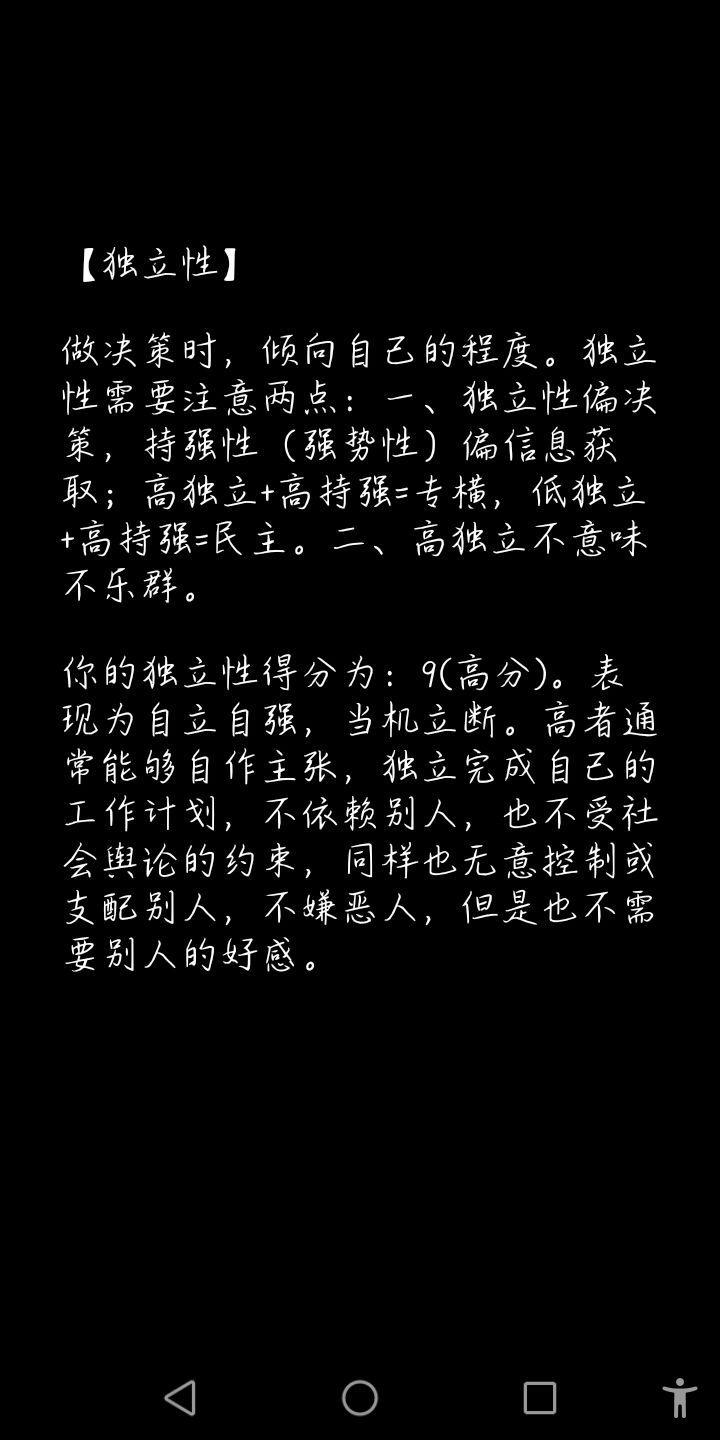 【独立性】
做决策时，倾向自己的程度。独立
性需要注意两点：一、独立性偏决
策，持强性（强势性）偏信息获
取；高独立+高持强=专横，低独立
+高持强=民主。二、高独立不意味
不乐群。
你的独立性得分为：9(高分)。表
现为自立自强，当机立断。高者通
常能够自作主张，独立完成自己的
工作计划，不依赖别人，也不受社
会舆论的约束，同样也无意控制或
支配别人，不嫌恶人，但是也不需
要别人的好感。